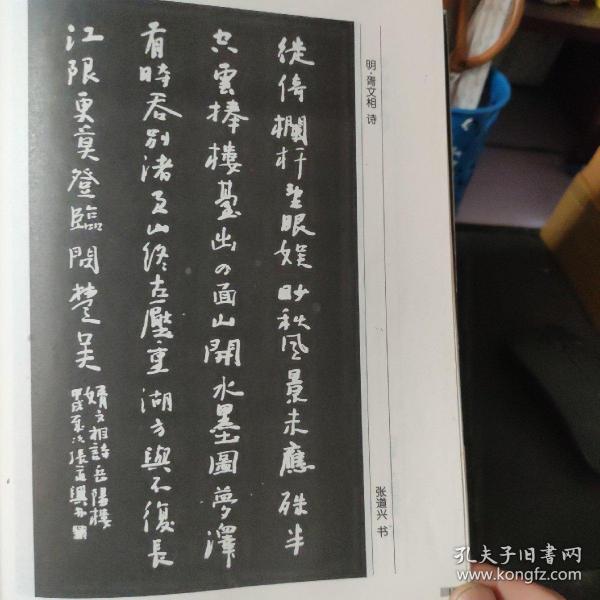 明·胥文相 诗
徙倚欄杆望眼娱眇秋風景未應殊半
空雲捧樓臺出四面山開水墨圖夢澤
有時吞別渚君山終古壓重湖方輿不復長
江限更莫登臨問楚吴
胥文相詩岳陽樓
張道興書
张道兴 书
孔夫子旧书网
www.kongfz.com